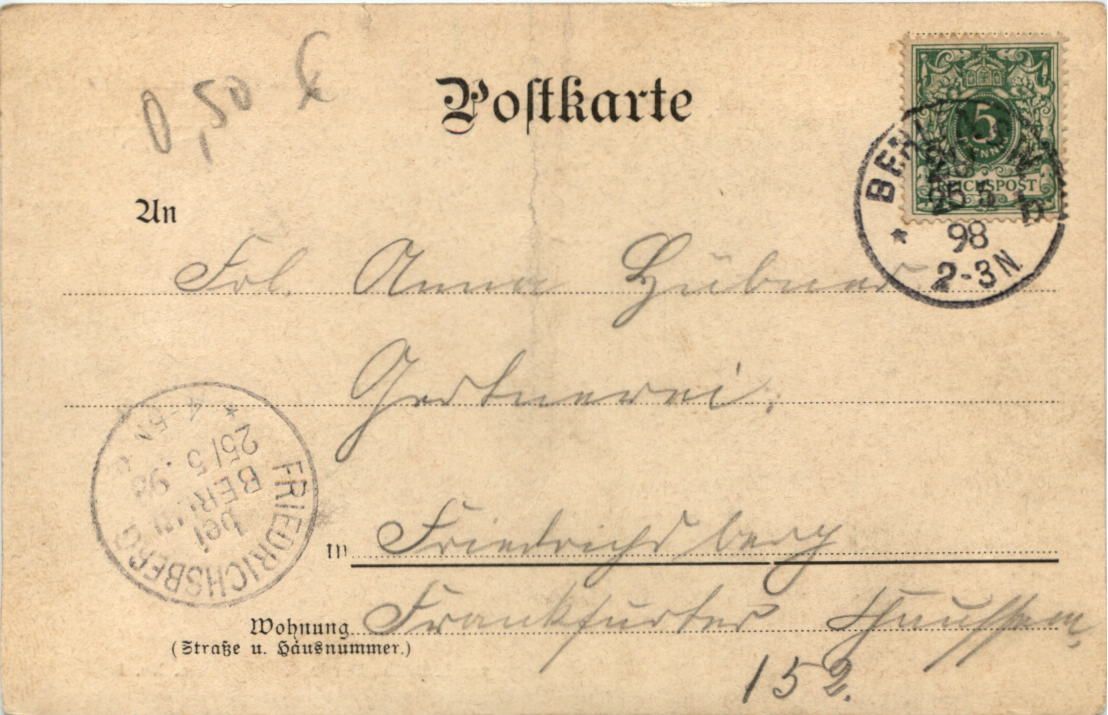 0,50 €
Postkarte
5
REICHSPOST
BERLIN
25 5
98
2-3N.
An
Frl. Anna Hübner
Gertnerei.
4-5N
25/5.98
BERLIN
bei
FRIEDRICHSBERG
in Friedrichsberg
Wohnung Frankfurter Chaussem,
(Straße u. Hausnummer.)
152.